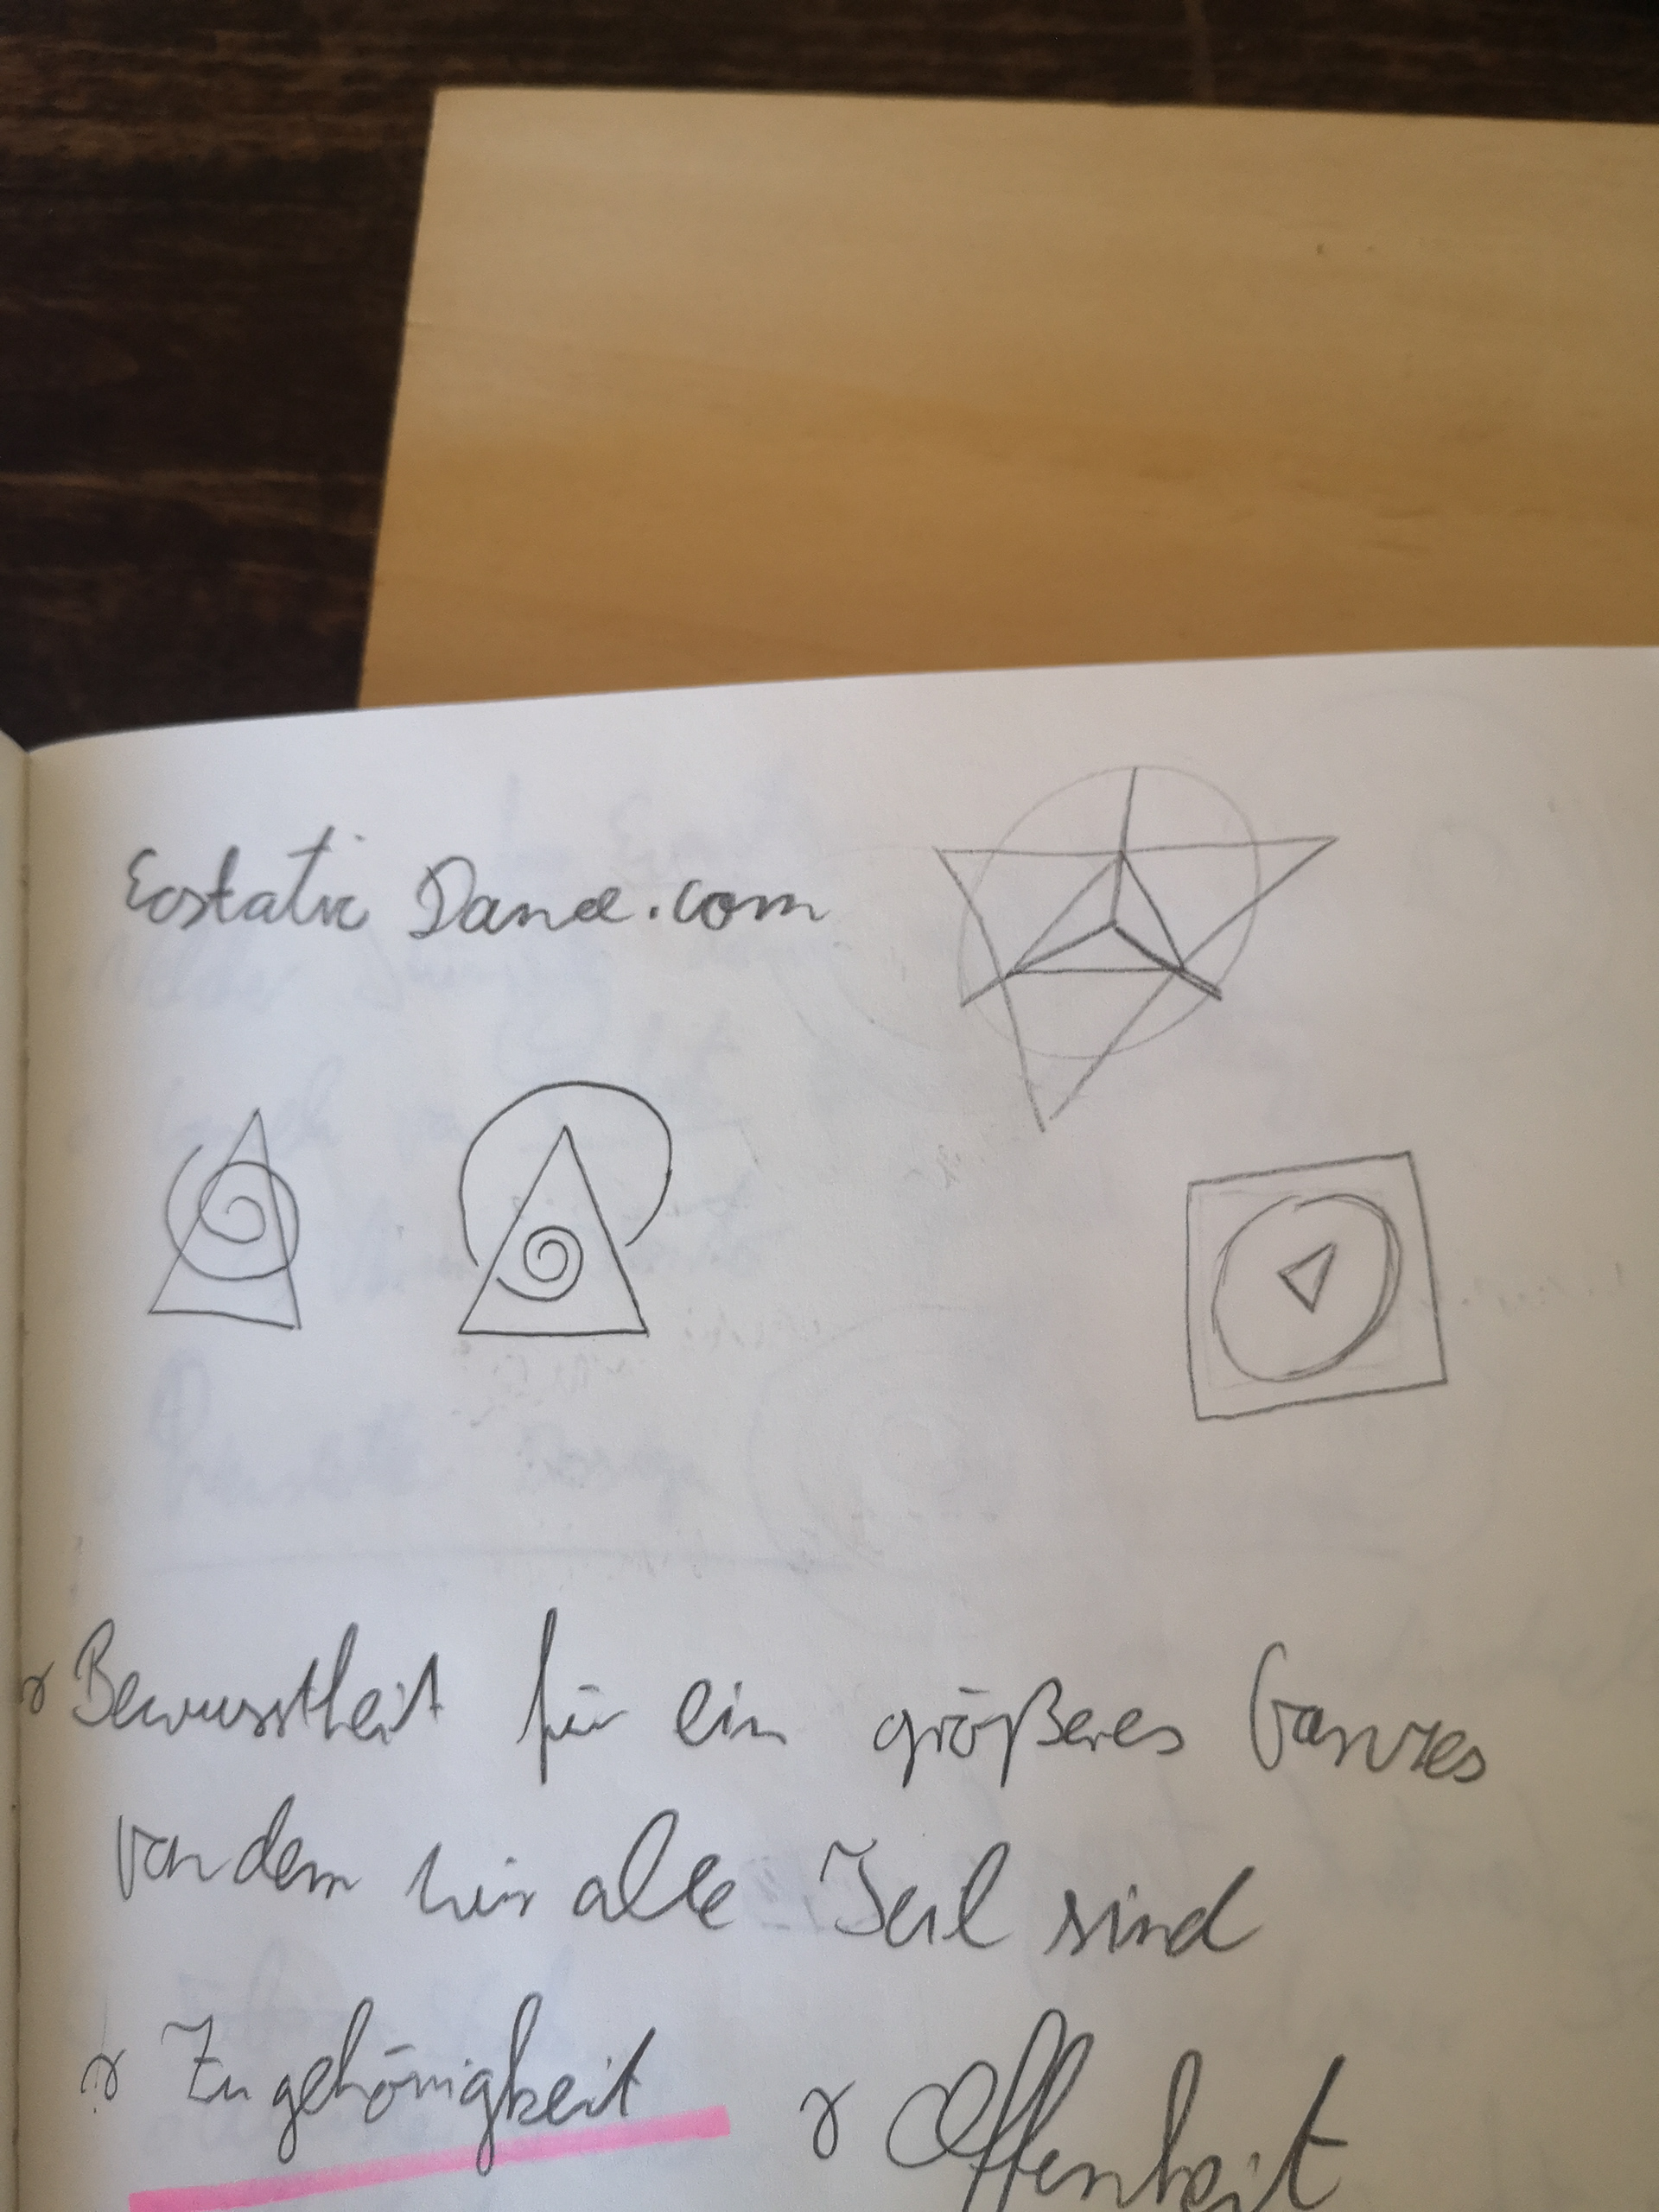 Ecstatic Dance.com
Bewusstheit für ein größeres Ganzes
von dem wir alle Teil sind
Zugehörigkeit Offenheit